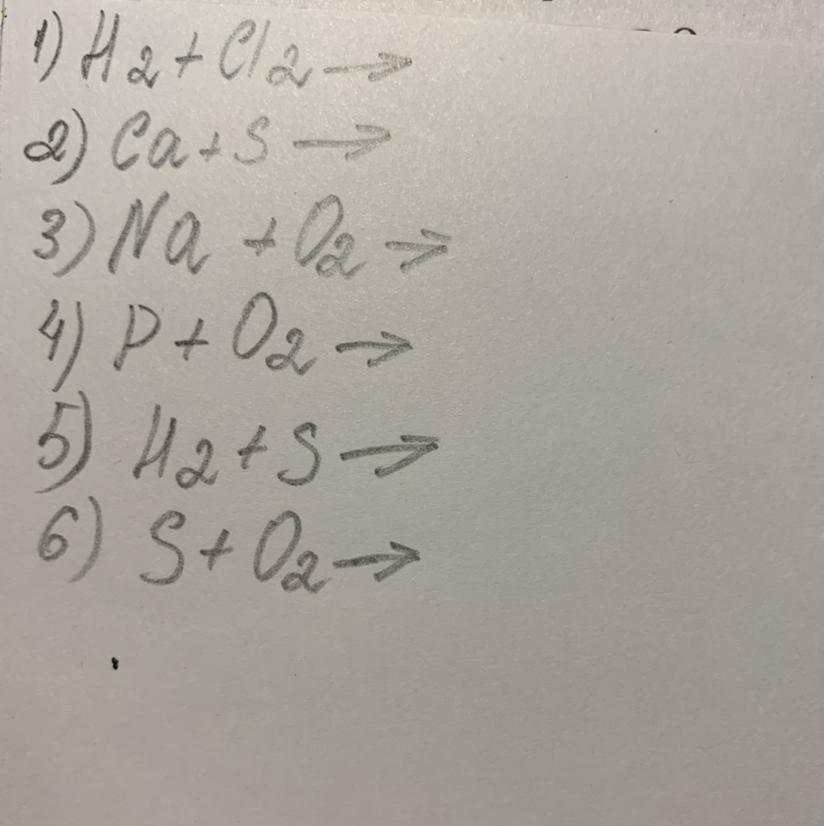 1) H2 + Cl2 →
2) Ca + S →
3) Na + O2 →
4) P + O2 →
5) H2 + S →
6) S + O2 →